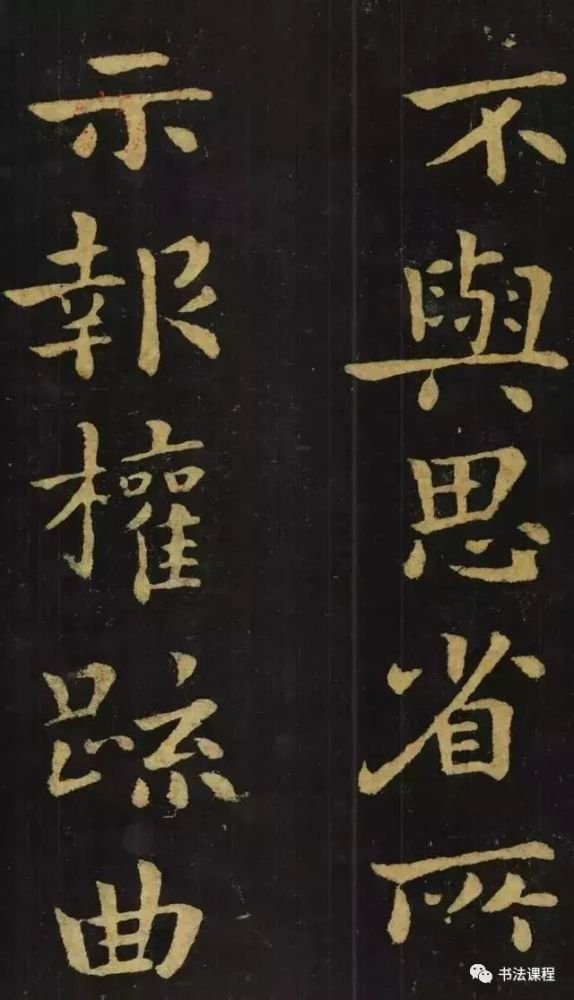 不與思省所
示報權疏曲
书法课程